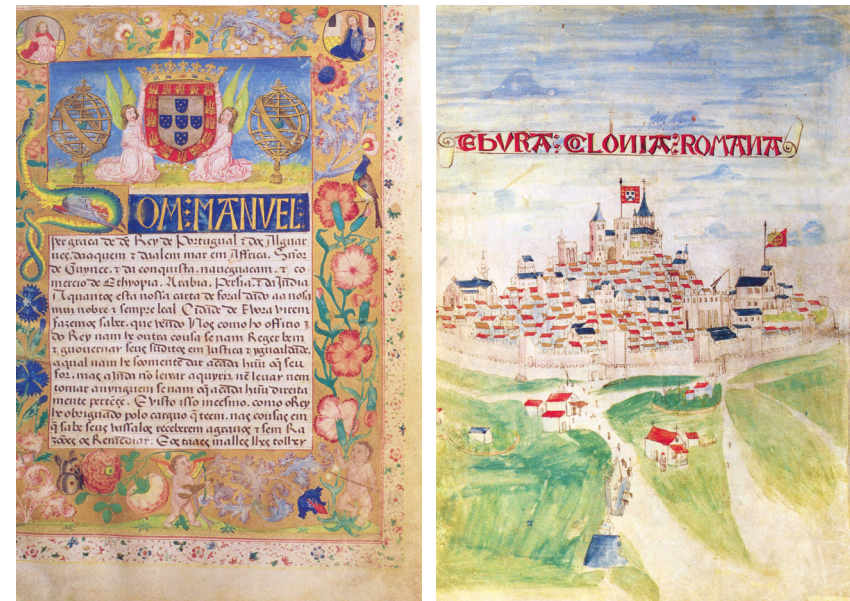 OM: MANVEL:
per graça de dē Rey de Portugual τ dos Alguar
ues, daaquem τ daalem mar em Affrica, Señor
de Guynee, τ da conquista, naueguaçam, τ co
mercio de Ethyopia, Arabia, Persia, τ da Jndia
A quantos esta nossa carta de foral dado aa nosa
muy nobre τ sempre leal Cidade de Evora virem
fazemos saber, que vendo Nos como ho officio
do Rey nam he outra cousa se nam Reger bem
τ guouernar seus subditos em justiça τ ygualdade,
a qual nam he soomente dar acada hūu o q̄ seu
for, mas ajnda no leixar aquyrir nē leuar nem
tomar a ninguem se nam o q̄ acada hūu direita
mente perteçe. E visto isso meesmo, como o Rey
he obriguado polo carguo q̄ teem, nas cousas em
q̄ sabe seus vassalos receberem agrauos τ sem Ra
zoões os Remediar. E os taaes malles lhes tolher
EBVRA: COLONIA: ROMANA